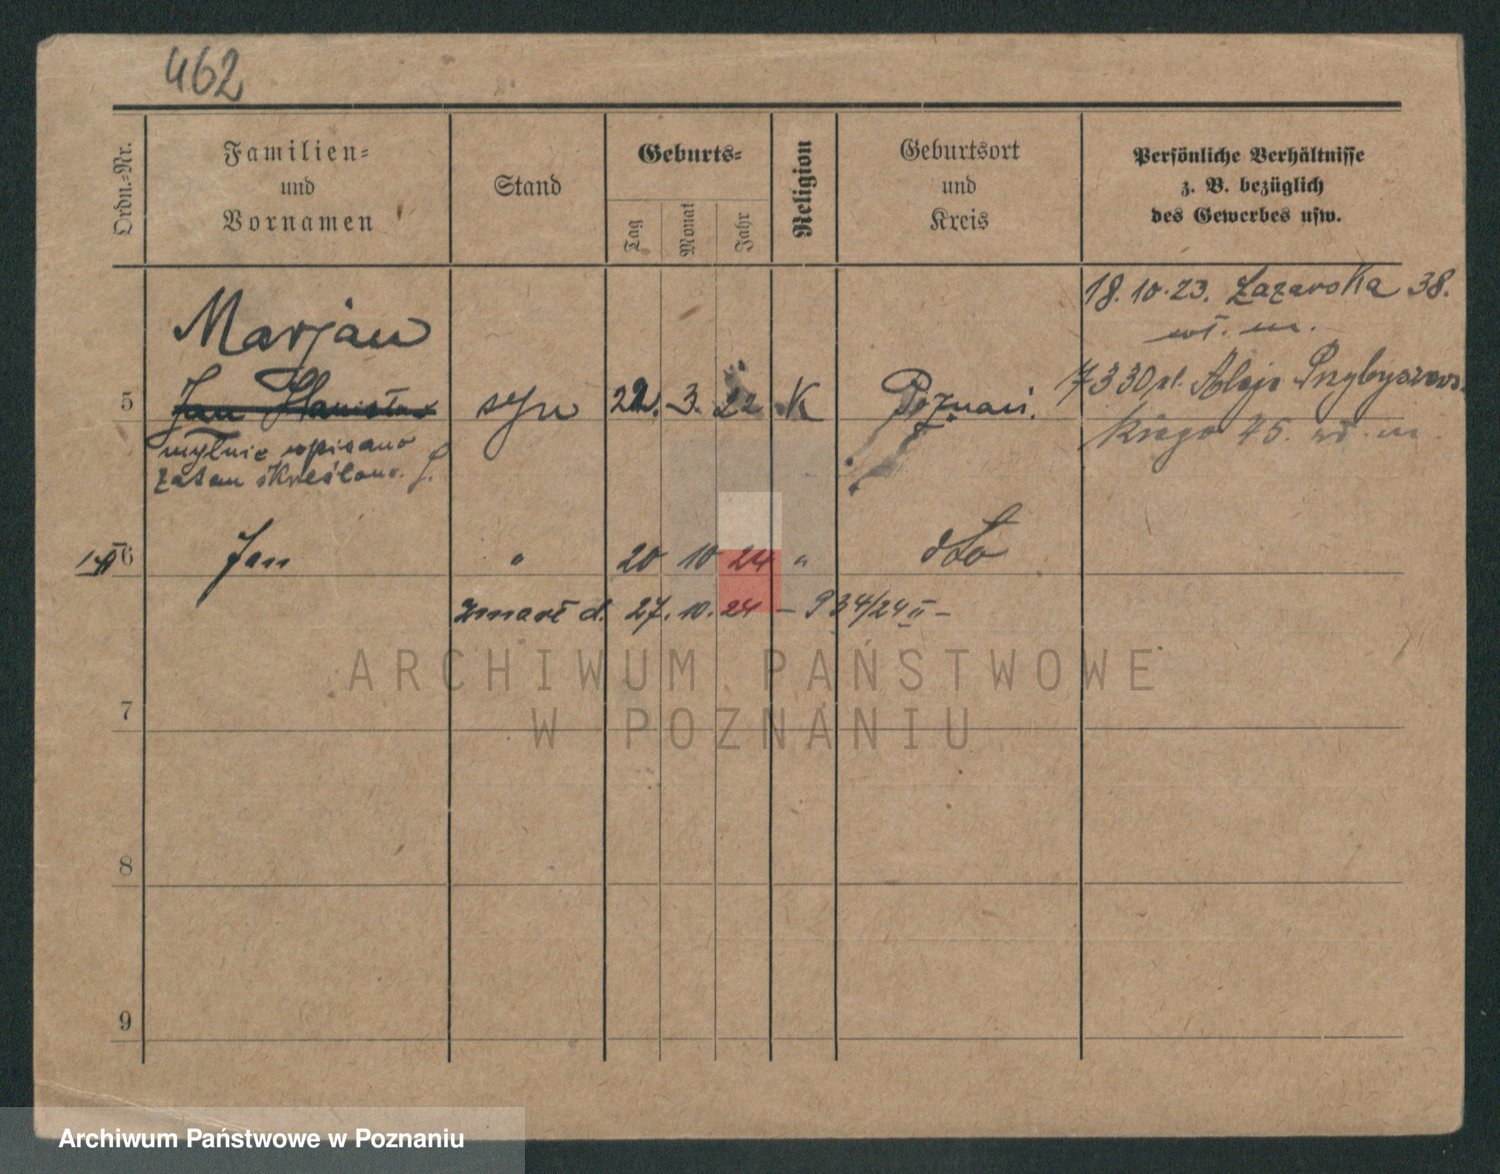 462
Ordn.-Nr.
Familien-
und
Vornamen
Stand
Geburts-
Tag
Monat
Jahr
Religion
Geburtsort
und
Kreis
Persönliche Verhältnisse
z. B. bezüglich
des Gewerbes usw.
18.10.23. Łazarska 38.
wł. m.
Marjan
5 Jan Stanisław syn 22. 3. 22 K Poznań.
7 3 30 pl. Aleje Przybyszews-
kiego 45. wł. m.
mylnie wpisano
zatem skreślono.
6 Jan " 20 10 24 " dto
Zmarł d. 27. 10. 24 – 934/24 II –
7
8
9
ARCHIWUM PAŃSTWOWE
W POZNANIU
Archiwum Państwowe w Poznaniu